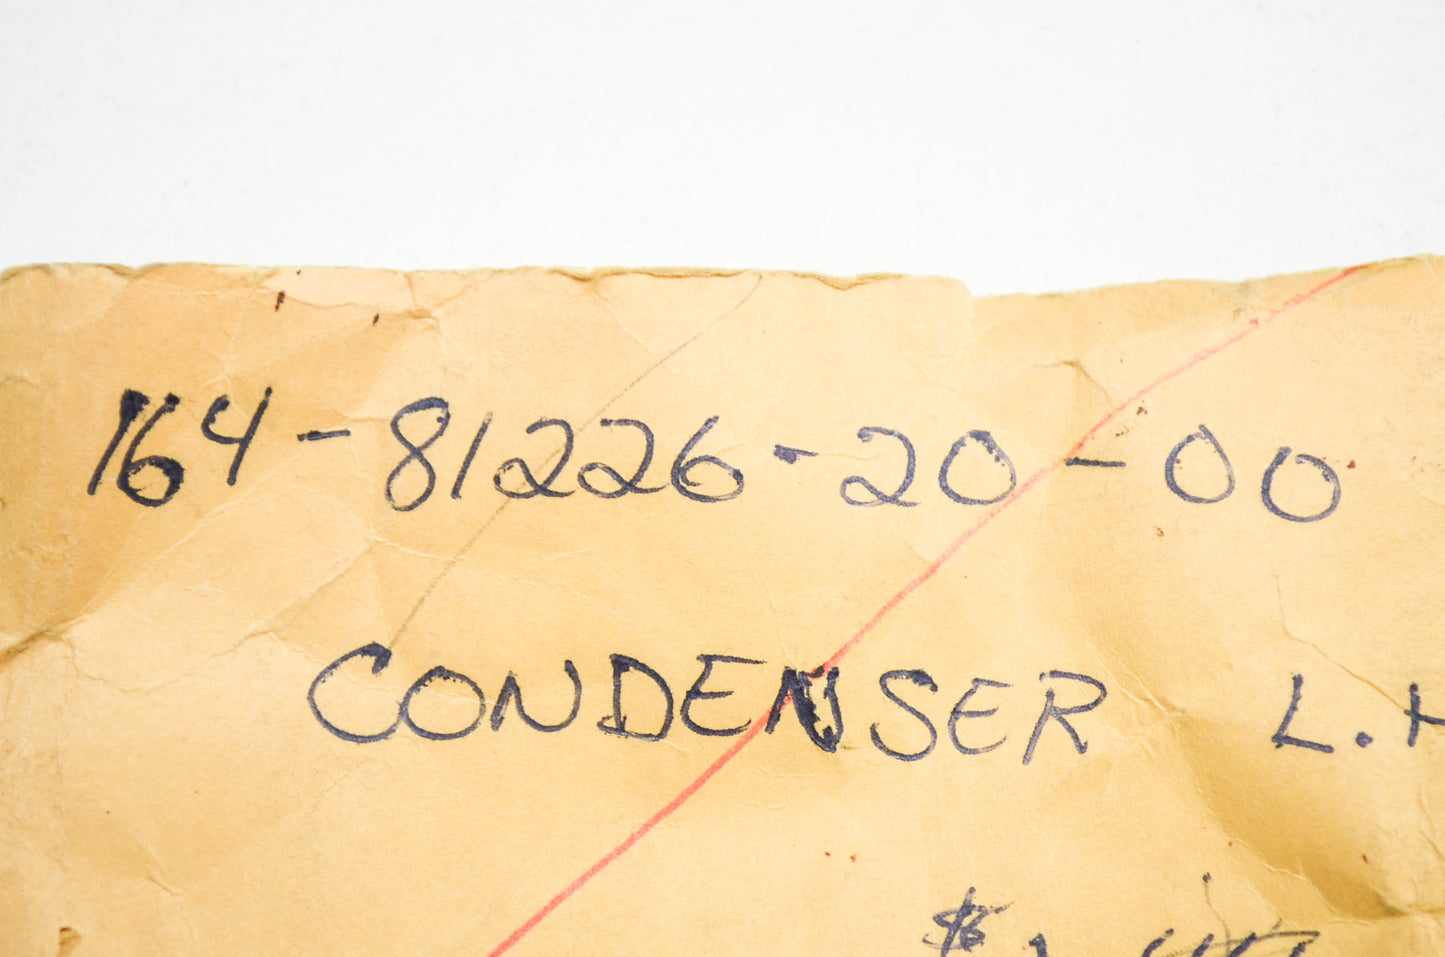 164-81226-20-00
CONDENSER L.H
$